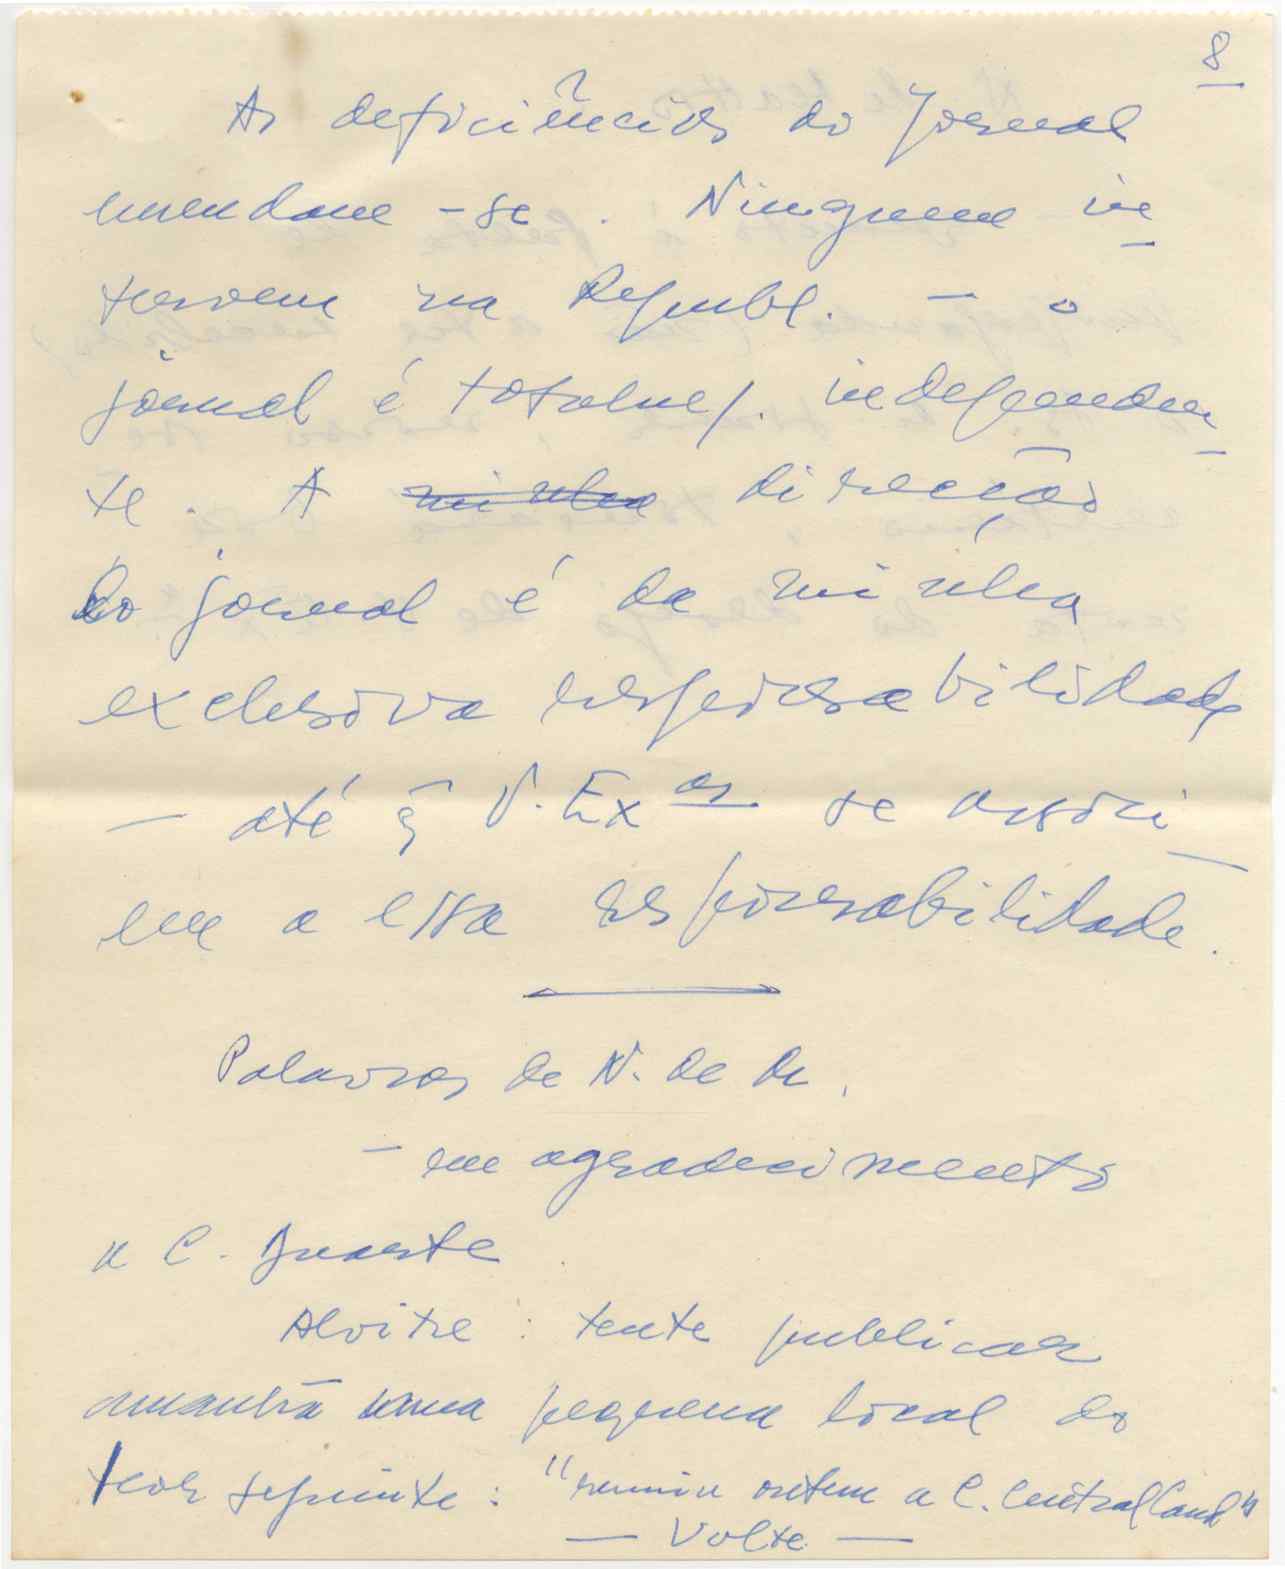 8
As deficiências do Jornal
emendam-se. Ninguem in
tervem na Republ. — o
jornal é totalme/. independen
te. A minha direcção
do jornal é da minha
exclusiva responsabilidade
— até q̃ V. Exas se associ
em a essa responsabilidade.
Palavras de N. de M.
— em agradecimento
a C. Duarte
Alvitre: tente publicar
amanhã uma pequena local do
teor seguinte: "reuniu ontem a C. Central Cand"
— Volte —